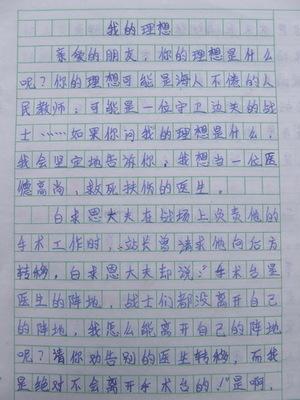 我的理想
亲爱的朋友，你的理想是什么
呢？你的理想可能是诲人不倦的人
民教师；可能是一位守卫边关的战
士……如果你问我的理想是什么，
我会坚定地告诉你，我想当一位医
德高尚，救死扶伤的医生。
白求恩大夫在战场上负责他的
手术工作时，站长曾请求他向后方
转移，白求恩大夫却说："手术台是
医生的阵地，战士们都没离开自己
的阵地，我怎么能离开自己的阵地
呢？请你劝告别的医生转移，而我
是绝对不会离开手术台的！"是啊，